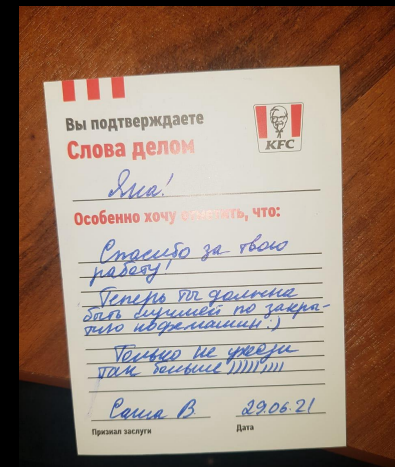 Вы подтверждаете
Слова делом
KFC
Яна!
Особенно хочу отметить, что:
Спасибо за твою
работу!
Теперь ты должна
быть лучшей по закры-
тию кофемашин :)
Только не уходи
так больше ))))))))
Саша В 29.06.21
Признал заслуги Дата